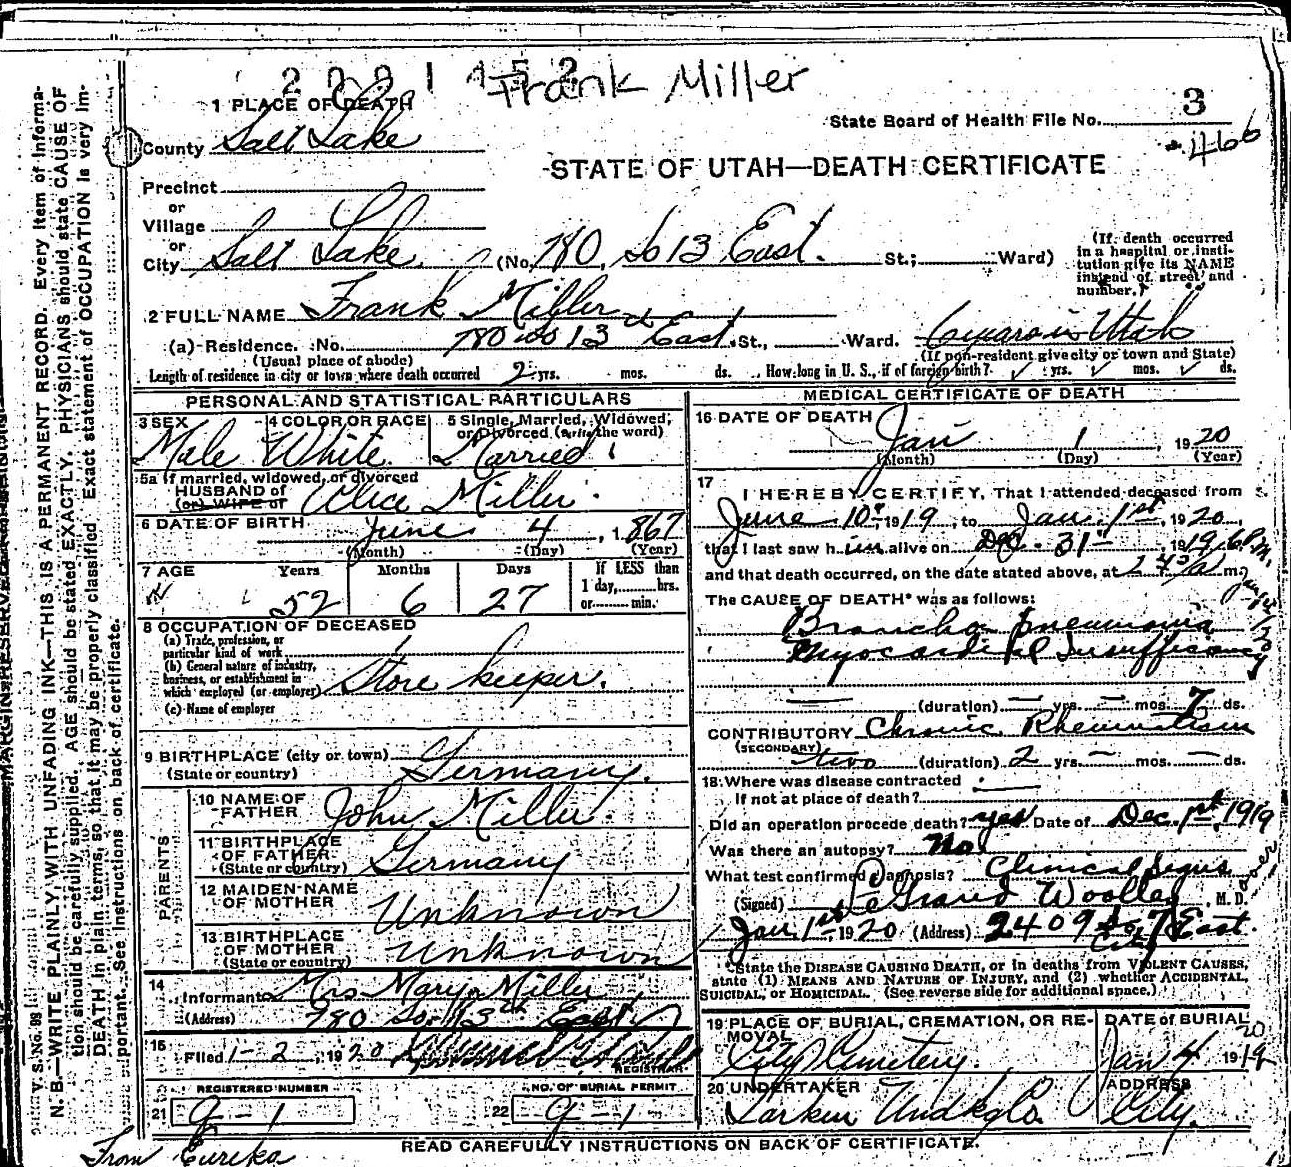 Frank Miller
1 PLACE OF DEATH
3
State Board of Health File No.
466
County Salt Lake
STATE OF UTAH—DEATH CERTIFICATE
Precinct
or
Village
or
City Salt Lake (No. 780 So 13 East. St.; Ward)
(If death occurred in a hospital or insti-
tution give its NAME
instead of street and
number.)
2 FULL NAME Frank Miller
(a) Residence. No. 780 So 13 East. St., Ward. Utah
(Usual place of abode) (If non-resident give city or town and State)
Length of residence in city or town where death occurred 2 yrs. mos. ds. How long in U. S., if of foreign birth? yrs. mos. ds.
PERSONAL AND STATISTICAL PARTICULARS
3 SEX Male
4 COLOR OR RACE White
5 Single, Married, Widowed, or Divorced (write the word) Married
5a If married, widowed, or divorced
HUSBAND of
(or) WIFE of Alice Miller
6 DATE OF BIRTH June 4, 1867
(Month) (Day) (Year)
7 AGE Years Months Days If LESS than
1 day, hrs.
or min.
52 6 27
8 OCCUPATION OF DECEASED
(a) Trade, profession, or
particular kind of work
(b) General nature of industry,
business, or establishment in
which employed (or employer) Store keeper.
(c) Name of employer
9 BIRTHPLACE (city or town)
(State or country) Germany.
PARENTS
10 NAME OF FATHER John Miller
11 BIRTHPLACE OF FATHER (State or country) Germany
12 MAIDEN NAME OF MOTHER Unknown
13 BIRTHPLACE OF MOTHER (State or country) Unknown
14 Informant Mrs Mary Miller
(Address) 780 So. 13th East
15 Filed 1-2, 1920
REGISTRAR
REGISTERED NUMBER
21 9-1
NO. OF BURIAL PERMIT
22 9-1
MEDICAL CERTIFICATE OF DEATH
16 DATE OF DEATH
Jan 1, 1920
(Month) (Day) (Year)
17
I HEREBY CERTIFY, That I attended deceased from
June 10th 1919, to Jan. 1st, 1920,
that I last saw him alive on Dec. 31st 1919, 6 P.M.
and that death occurred, on the date stated above, at 2 45 a m.
The CAUSE OF DEATH* was as follows:
Broncho pneumonia
Myocardial Insufficiency
(duration) — yrs. — mos. 7 ds.
CONTRIBUTORY Chronic Rheumatism
(SECONDARY)
two (duration) 2 yrs. — mos. — ds.
18 Where was disease contracted
If not at place of death?
Did an operation precede death? yes Date of Dec 1st, 1919
Was there an autopsy? No
What test confirmed diagnosis? Clinical Signs
over
(Signed) LeGrand Woolley, M. D.
Jan. 1st, 1920 (Address) 2409 So 7 East.
City
*State the DISEASE CAUSING DEATH, or in deaths from VIOLENT CAUSES,
state (1) MEANS AND NATURE OF INJURY, and (2) whether ACCIDENTAL,
SUICIDAL, or HOMICIDAL. (See reverse side for additional space.)
19 PLACE OF BURIAL, CREMATION, OR RE-
MOVAL
City Cemetery.
DATE OF BURIAL
Jan 4 1920
20 UNDERTAKER
Larkin Undtg Co.
ADDRESS
City.
READ CAREFULLY INSTRUCTIONS ON BACK OF CERTIFICATE.
From Eureka
MARGIN RESERVED FOR BINDING
V. S. No.
N. B.—WRITE PLAINLY, WITH UNFADING INK—THIS IS A PERMANENT RECORD. Every item of informa-
tion should be carefully supplied. AGE should be stated EXACTLY. PHYSICIANS should state CAUSE OF
DEATH in plain terms, so that it may be properly classified. Exact statement of OCCUPATION is very im-
portant. See instructions on back of certificate.